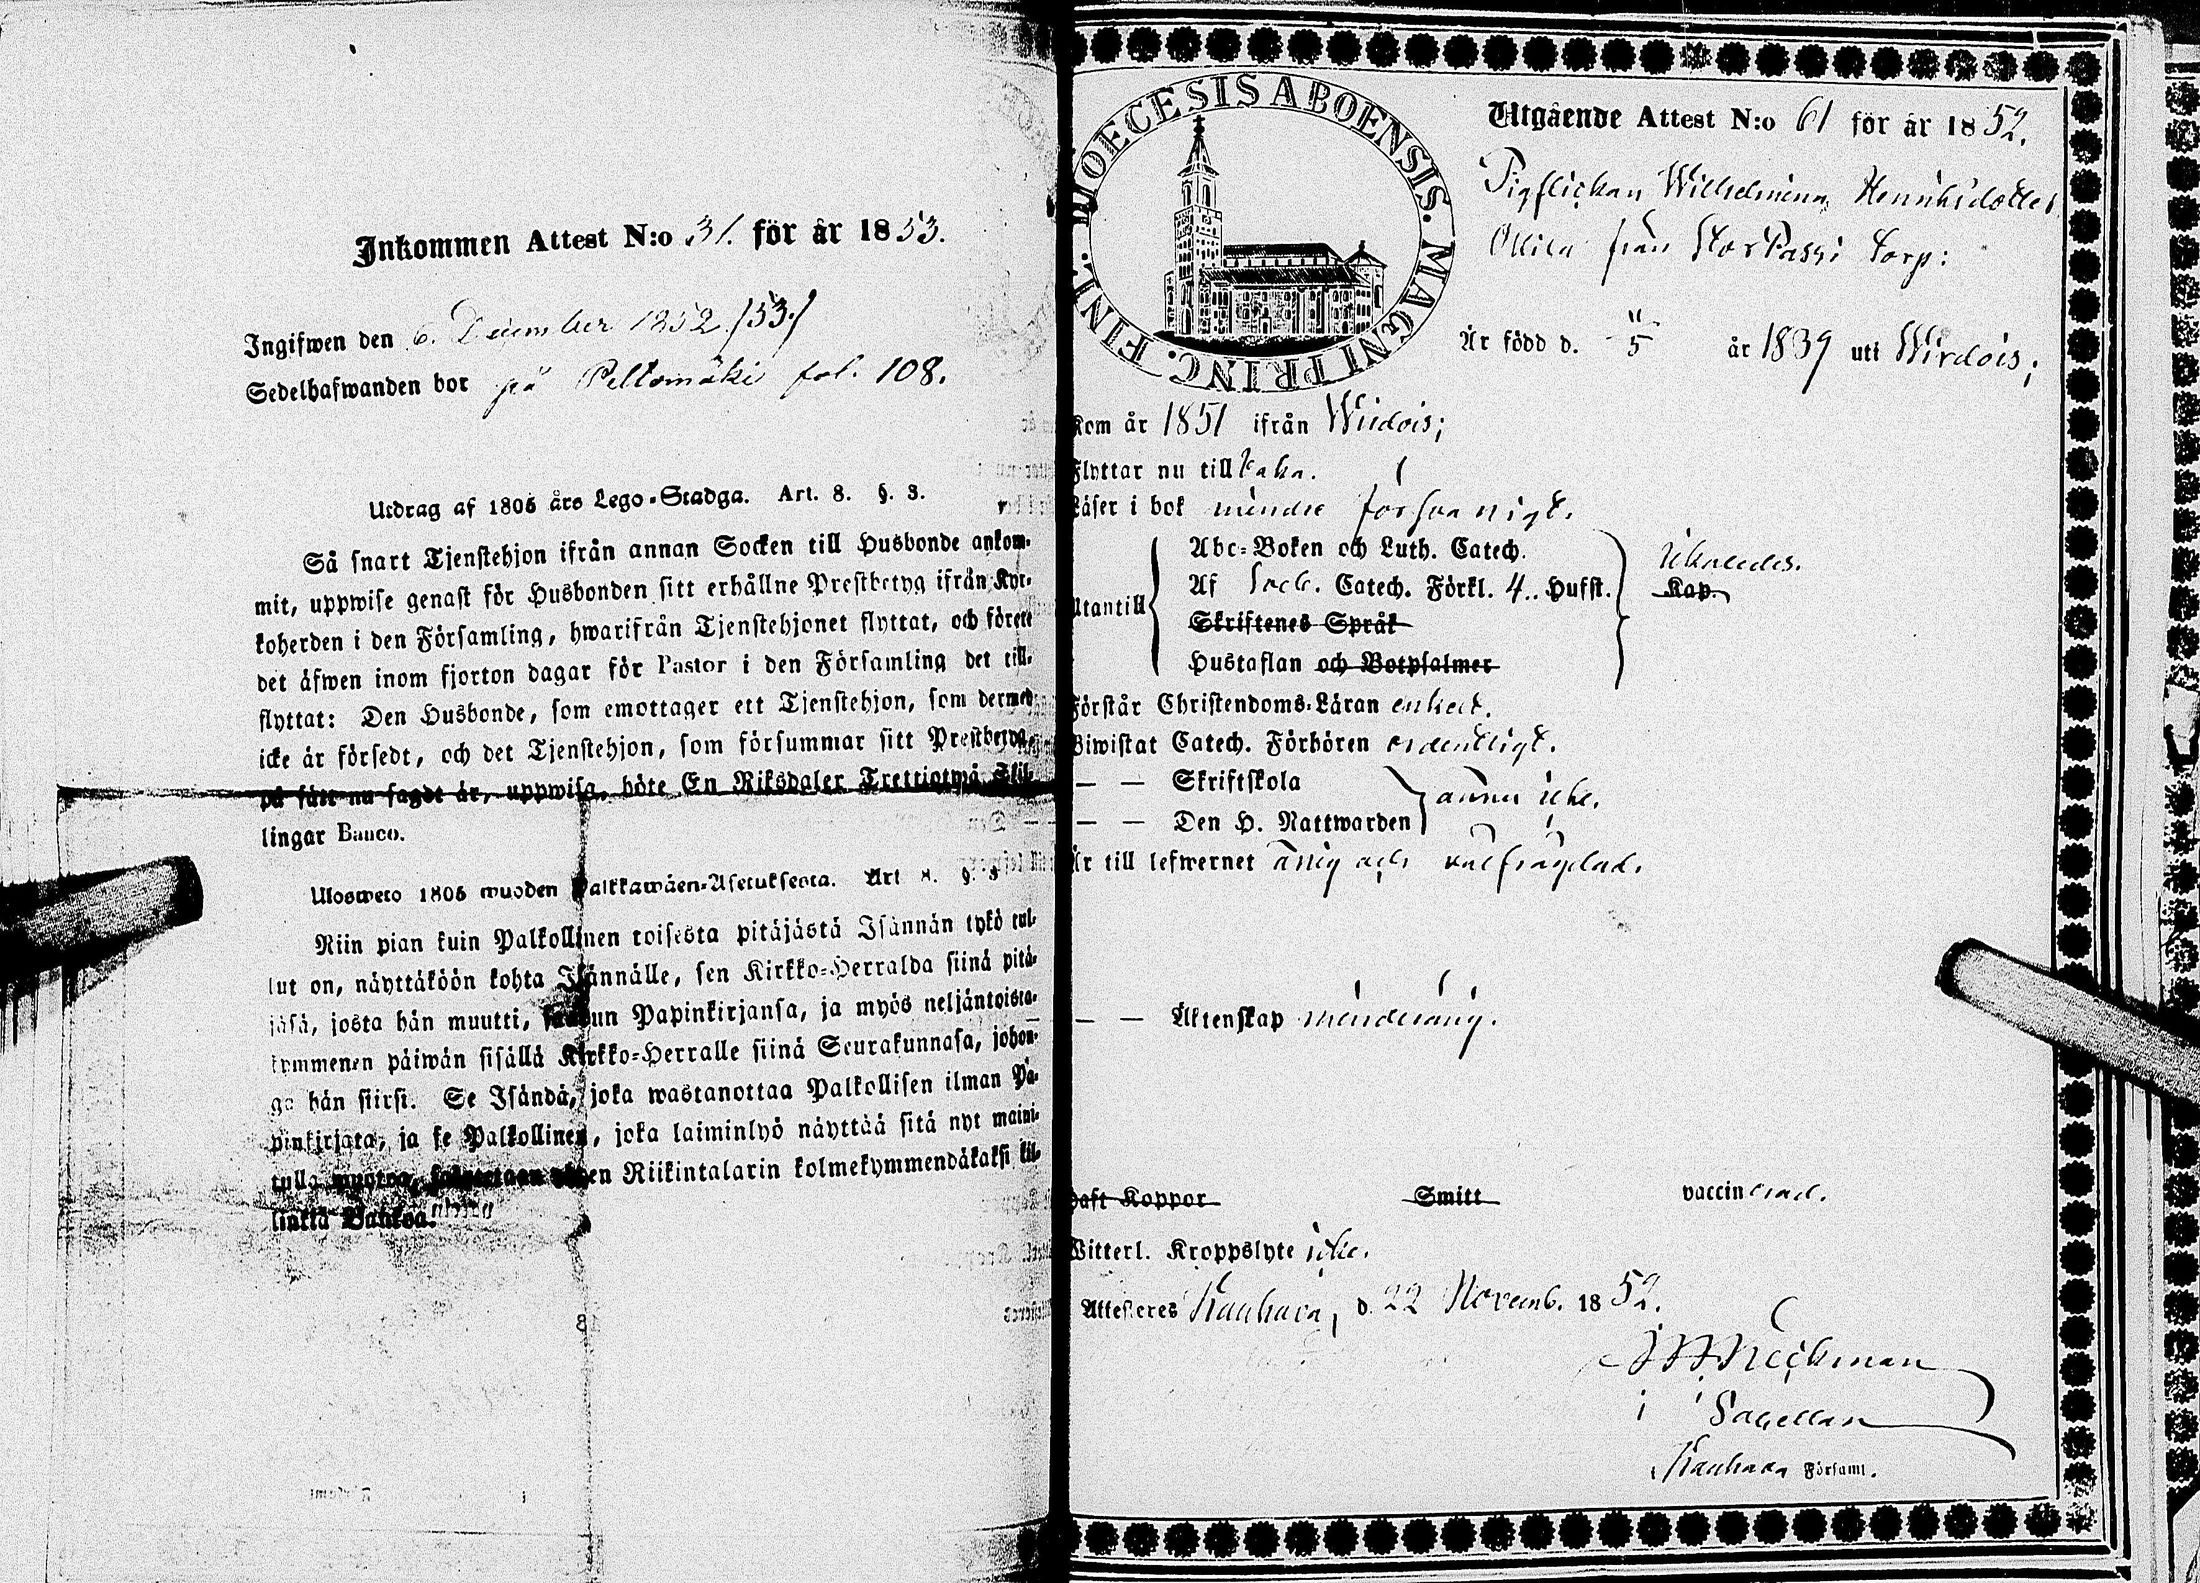 Inkommen Attest N:o 31. för år 1853.
Ingifwen den 6. December 1852./53./
Sedelhafwanden bor på Peltomäki fol. 108.
Utdrag af 1805 års Lego-Stadga. Art. 8. §. 3.
Så snart Tjenstehjon ifrån annan Socken till Husbonde ankom-
mit, uppwise genast för Husbonden sitt erhållne Prestbetyg ifrån Kyr-
koherden i den Församling, hwarifrån Tjenstehjonet flyttat, och förete
det äfwen inom fjorton dagar för Pastor i den Församling det till-
flyttat: Den Husbonde, som emottager ett Tjenstehjon, som dermed
icke är försedt, och det Tjenstehjon, som försummar sitt Prestbetyg,
på sätt nu sagdt är, uppwisa, böte En Riksdaler Trettiotwå Skil-
lingar Banco.
Ulosweto 1805 wuoden Palkkawäen-Asetuksesta. Art 8. §. 3
Niin pian kuin Palkollinen toisesta pitäjästä Isännän tykö tul-
lut on, näyttäköön kohta Isännälle, sen Kirkko-Herralda siinä pitä-
jäsä, josta hän muutti, saadun Papinkirjansa, ja myös neljäntoista-
kymmenen päiwän sisällä Kirkko-Herralle siinä Seurakunnasa, johon-
ga hän siirsi. Se Isändä, joka wastanottaa Palkollisen ilman Pa-
pinkirjata, ja se Palkollinen, joka laiminlyö näyttää sitä nyt maini-
tulla muotoa, Riikintalarin kolmekymmendäkaksi kil-
linkiä Bankoa.
DIOECESIS ABOENSIS. MAGNI PRINC. FINL.
Utgående Attest N:o 61 för år 1852.
Pigflickan Wilhelmina Henriksdotter
Ollila från Stor Passi torp:
Är född d. 11/5 år 1839 uti Wirdois;
Kom år 1851 ifrån Wirdois;
Flyttar nu tillbaka.
Läser i bok mindre försvarligt.
Abc-Boken och Luth. Catech.
Af Sveb. Catech. Förkl. 4. Hufst. Kap.
Utantill
Skriftenes Språk
Hustaflan och Botpsalmer
Förstår Christendoms-Läran enkelt.
Biwistat Catech. Förhören ordentligt.
— — Skriftskola
— — Den H. Nattwarden ännu icke.
Är till lefwernet ärlig och välfrägdad.
— — Äktenskap minderårig.
Haft Koppor Smitt vaccinerad.
Witterl. Kroppslyte icke.
Attesteres Kauhava, d. 22 Novemb. 1852.
Sacellan
Kauhava Församl.